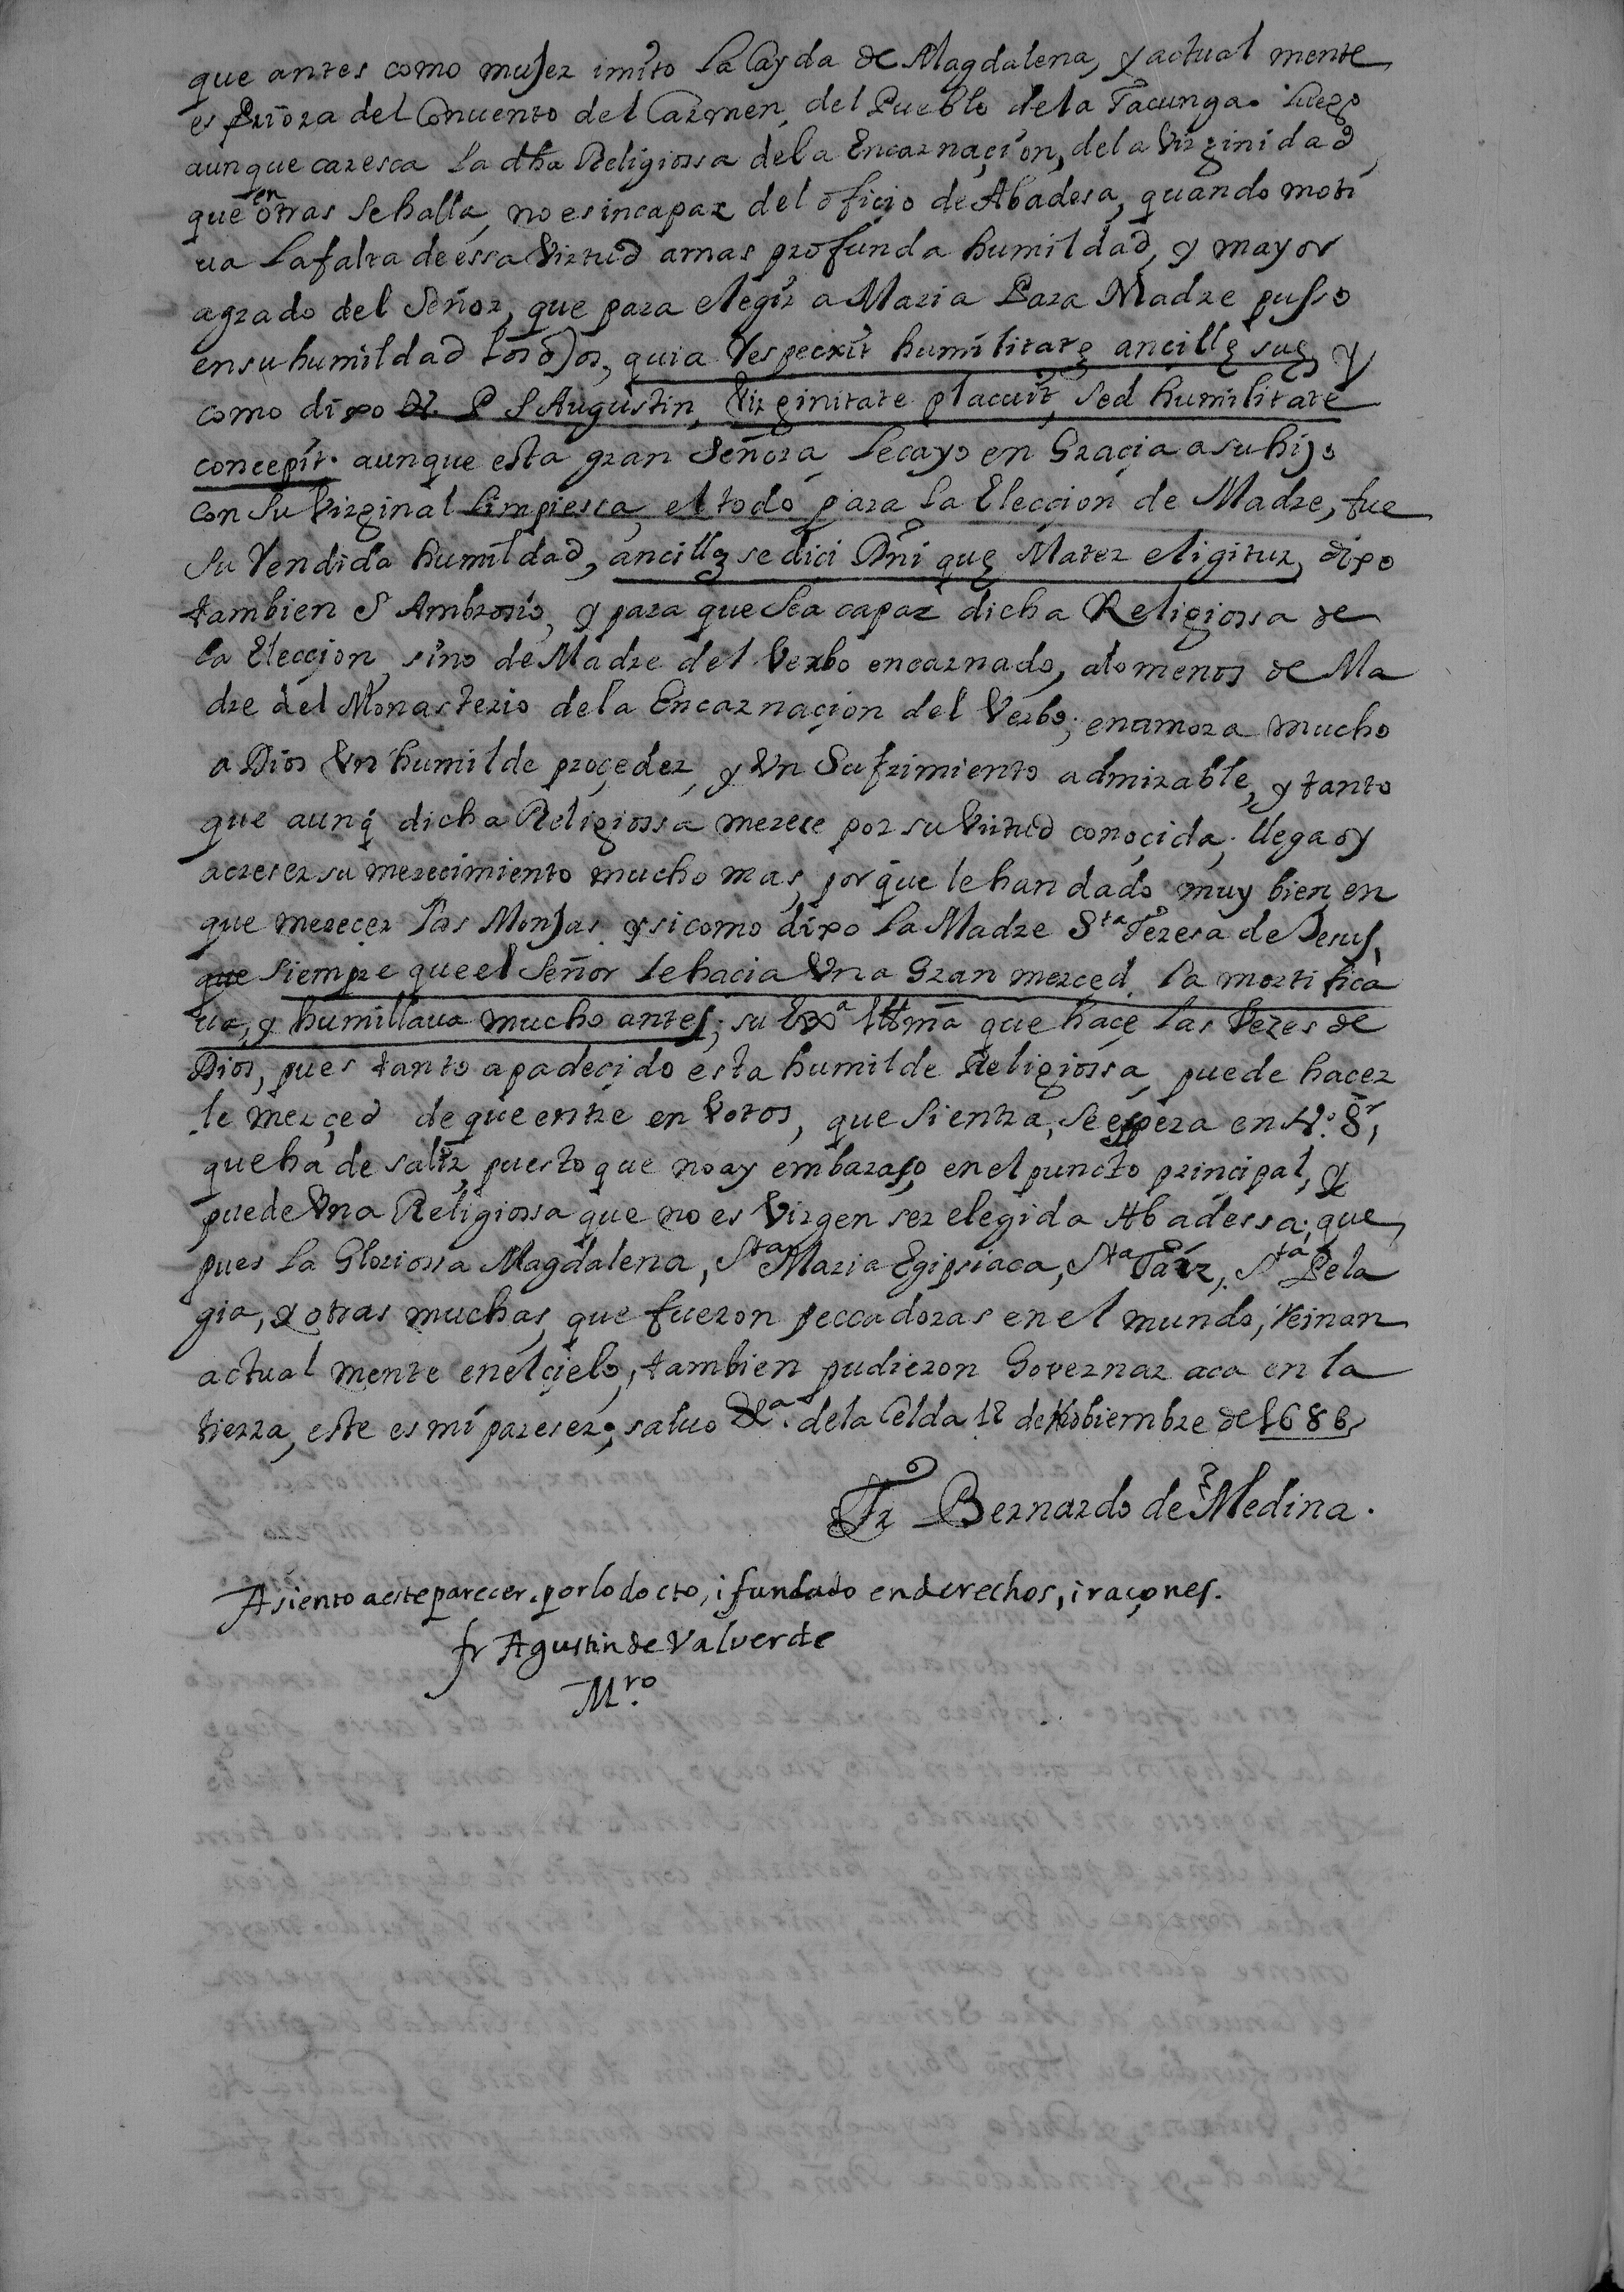 que antes como muJer imito la Cayda de Magdalena, y actual mente
es Priora del Conuento del Carmen, del Pueblo dela Tacunga. luego
aunque caresca la dha Religiossa dela Encarnaçion, dela Virginidad
que en otras se halla, no es incapaz del oficio de Abadesa, quando moti
ua la falta de essa Virtud a mas profunda humildad, y mayor
agrado del Señor, que para elegir a Maria Para Madre pusso
en su humildad los oJos, quia respecxit humilitatę ancillę suę, y
como dixo N. P S Augustin, Virginitate placuit, sed humilitate
concepit. aunque esta gran Señora le cayo en Graçia a su hijo
con su Virginal limpiessa, el todo para la Elecçion de Madre, fue
su rendida humildad, ancillę se dici Dñi quę Mater eligitur, dixo
tambien S Ambrosio, y para que sea capaz dicha Religiossa de
la Elecçion, sino de Madre del Verbo encarnado, alomenos de Ma
dre del Monasterio dela Encarnaçion del Verbo; enamora mucho
a Dios Vn humilde proçeder, y Vn Sufrimiento admirable, y tanto
que aunq̃ dicha Religiossa merece por su Virtud conoçida; llega oy
acreser su merecimiento mucho mas, porque le han dado muy bien en
que mereçer las MonJas. y si como dixo la Madre Sta Teresa de Jesus,
que siempre que el Señor le hacia Vna Gran merced, la mortifica
ua, y humillaua mucho antes; su Exa Illma que haçe las Vezes de
Dios, pues tanto a padeçido esta humilde Religiossa, puede hacer
le merçed de que entre en Votos, que si entra, se espera en N. Sr,
que ha de salir, puesto que no ay embaraso, en el puncto principal, y
puede Vna Religiossa que no es Virgen ser elegida Abadessa; que,
pues la Gloriossa Magdalena, Sta Maria Egipsiaca, Sta Taiz, Sta Pela
gia, y otras muchas, que fueron peccadoras en el mundo, reinan
actual mente en el çielo, tambien pudieron Governar aca en la
tierra, este es mi pareser; saluo &a. dela Celda 18 de Nobiembre de 1686
Fr Bernardo de Medina.
Asiento a este parecer. por lo docto, i fundado en derechos, i raçones.
fr Agustin de Valverde
Mro.